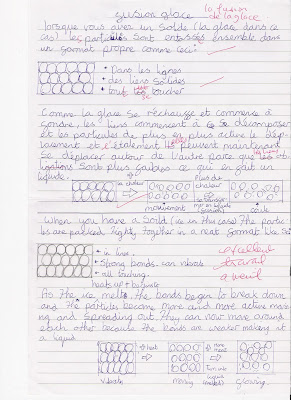 fusion glace
la fusion
de la glace
lorsque vous avez un solids (la glace dans ce
cas) les particules sont ensemble dans
un format propre comme ceci:
Dans les lignes
des liens solides
tout toucher
Comme la glace se réchauffe et commence à
fondre, les liens commencent à se décomposer
et les particules de plus en plus active le dép-
lacement et l'étalement peuvent maintenant
se déplacer autour de l'autre parce que les
sont plus faibles ce qui en fait un
liquide.
plus de
chaleur
mouvement
When you have a Solid (ice in this case) the partic-
les are packed tightly together in a neat format like so
in line
Strong bonds. can vibrate
all touching.
excellent
travail
As the ice melts the bonds begin to break down
and the particles become more and more active moving
and spreading out. They can now move around
each other because the bonds are weaker making it
a liquid.
heat
more
heat
Turn into
vibrate
moving